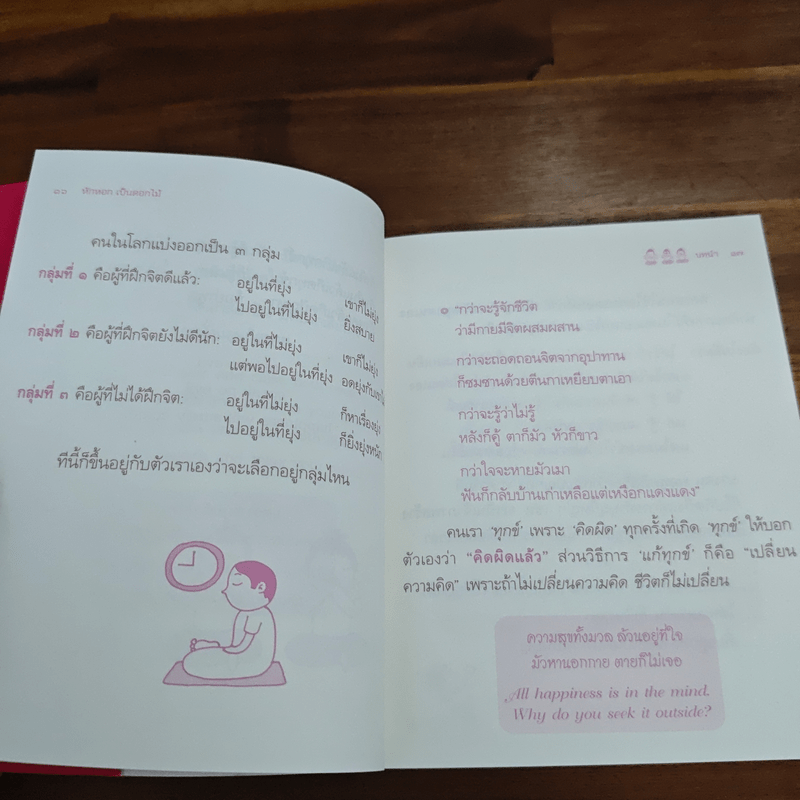 ๑๖ หักหอก เป็นดอกไม้
คนในโลกแบ่งออกเป็น ๓ กลุ่ม
กลุ่มที่ ๑ คือผู้ที่ฝึกจิตดีแล้ว: อยู่ในที่ยุ่ง เขาก็ไม่ยุ่ง
ไปอยู่ในที่ไม่ยุ่ง ยิ่งสบาย
กลุ่มที่ ๒ คือผู้ที่ฝึกจิตยังไม่ดีนัก: อยู่ในที่ไม่ยุ่ง เขาก็ไม่ยุ่ง
แต่พอไปอยู่ในที่ยุ่ง อดยุ่งกับเขา
กลุ่มที่ ๓ คือผู้ที่ไม่ได้ฝึกจิต: อยู่ในที่ไม่ยุ่ง ก็หาเรื่องยุ่ง
ไปอยู่ในที่ยุ่ง ก็ยิ่งยุ่งหนัก
ทีนี้ก็ขึ้นอยู่กับตัวเราเองว่าจะเลือกอยู่กลุ่มไหน
บทนำ ๑๗
๑ "กว่าจะรู้จักชีวิต
ว่ามีกายมีจิตผสมผสาน
กว่าจะถอดถอนจิตจากอุปาทาน
ก็ซมซานด้วยตีนกาเหยียบตาเอา
กว่าจะรู้ว่าไม่รู้
หลังก็คู้ ตาก็มัว หัวก็ขาว
กว่าใจจะหายมัวเมา
ฟันก็กลับบ้านเก่าเหลือแต่เหงือกแดงแดง"
คนเรา 'ทุกข์' เพราะ 'คิดผิด' ทุกครั้งที่เกิด 'ทุกข์' ให้บอก
ตัวเองว่า "คิดผิดแล้ว" ส่วนวิธีการ 'แก้ทุกข์' ก็คือ "เปลี่ยน
ความคิด" เพราะถ้าไม่เปลี่ยนความคิด ชีวิตก็ไม่เปลี่ยน
ความสุขทั้งมวล ล้วนอยู่ที่ใจ
มัวหานอกกาย ตายก็ไม่เจอ
All happiness is in the mind.
Why do you seek it outside?